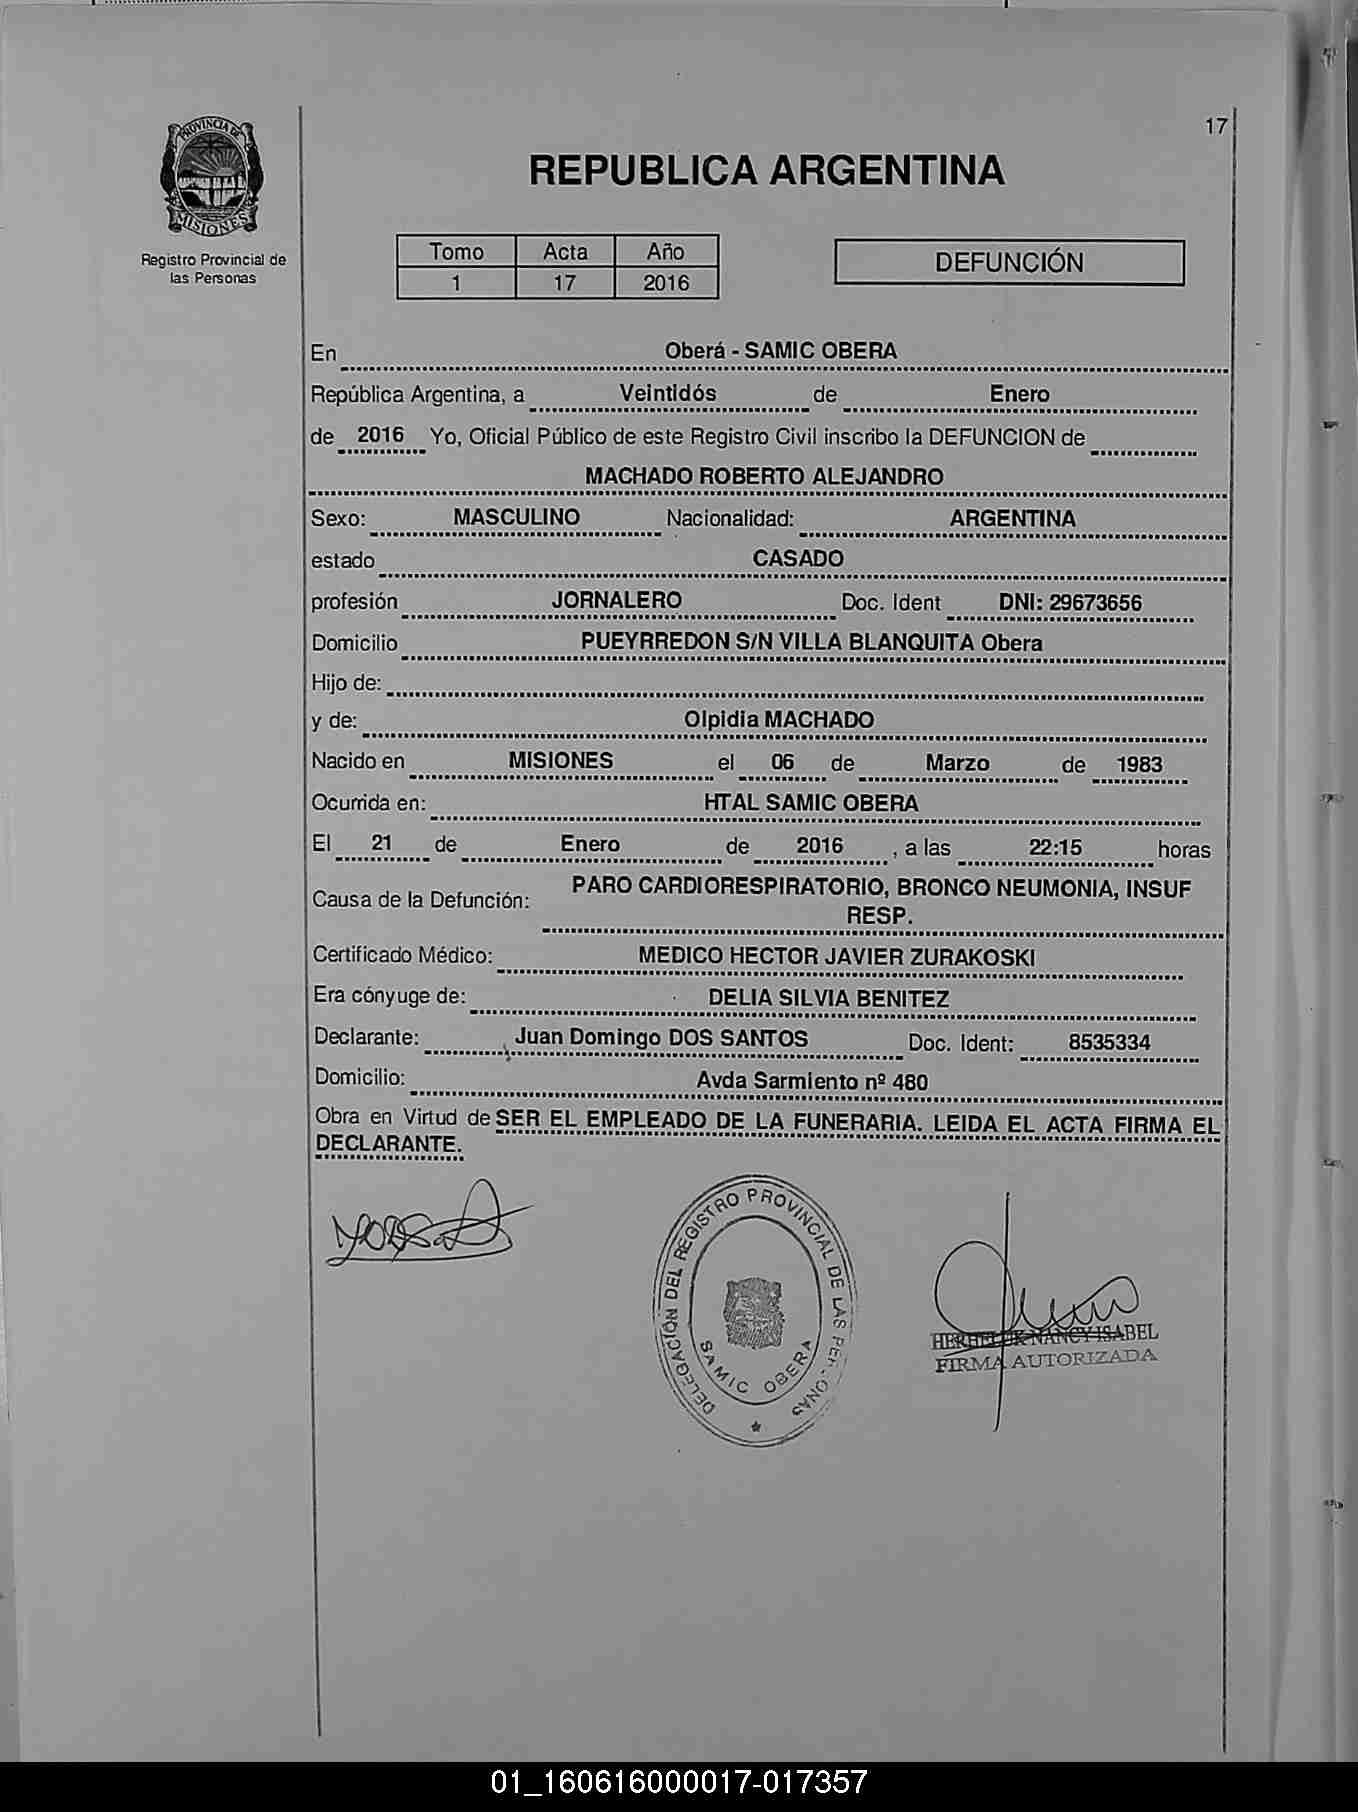 17
PROVINCIA DE
MISIONES
Registro Provincial de
las Personas
REPUBLICA ARGENTINA
Tomo Acta Año
1 17 2016
DEFUNCIÓN
En Oberá - SAMIC OBERA
República Argentina, a Veintidós de Enero
de 2016 Yo, Oficial Público de este Registro Civil inscribo la DEFUNCION de
MACHADO ROBERTO ALEJANDRO
Sexo: MASCULINO Nacionalidad: ARGENTINA
estado CASADO
profesión JORNALERO Doc. Ident DNI: 29673656
Domicilio PUEYRREDON S/N VILLA BLANQUITA Obera
Hijo de:
y de: Olpidia MACHADO
Nacido en MISIONES el 06 de Marzo de 1983
Ocurrida en: HTAL SAMIC OBERA
El 21 de Enero de 2016 , a las 22:15 horas
Causa de la Defunción: PARO CARDIORESPIRATORIO, BRONCO NEUMONIA, INSUF
RESP.
Certificado Médico: MEDICO HECTOR JAVIER ZURAKOSKI
Era cónyuge de: DELIA SILVIA BENITEZ
Declarante: Juan Domingo DOS SANTOS Doc. Ident: 8535334
Domicilio: Avda Sarmiento nº 480
Obra en Virtud de SER EL EMPLEADO DE LA FUNERARIA. LEIDA EL ACTA FIRMA EL
DECLARANTE.
DELEGACIÓN DEL REGISTRO PROVINCIAL DE LAS PERSONAS
SAMIC OBERA
NANCY ISABEL
FIRMA AUTORIZADA
01_160616000017-017357